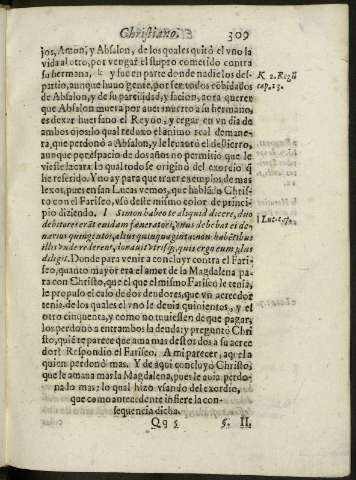 Christiano. 309
jos, Amon, y Absalon, de los quales quitó el vno la
vida al otro, por vengar el stupro cometido contra
su hermana, k y fue en parte donde nadie los des-
partio, aunque huuo gente, por ser todos cõbidados
de Absalon, y de su parcialidad, y facion, aora querer
que Absalon muera por auer muerto a su hermano,
es dexar huerfano el Reyno, y cegar en vn dia de
ambos ojos: lo qual reduxo el animo real de mane-
ra, que perdonò a Absalon, y le leuantò el destierro,
aunque por espacio de dos años no permitio que le
viesse la cara. Lo qual todo se origino del exordio q̃
he referido. Y no ay para que traer exemplos de mas
lexos, pues en san Lucas vemos, que hablãdo Chris-
to con el Fariseo, vsò deste mismo color de princi-
pio diziendo. l Simon habeo te aliquid dicere, duo
debitores erãt cuidam fœneratori, vnus debebat de-
narios quingentos, alius quinquaginta, non habẽtibus
illis vnde redderent, donauit vtrisq́;, quis ergo eum plus
diligit. Donde para venir a concluyr contra el Fari-
seo, quanto mayor era el amor de la Magdalena pa-
ra con Christo, que el que el mismo Fariseo le tenia,
le propuso el caso de dos deudores, que vn acreedor
tenia, de los quales el vno le deuia quinientos, y el
otro cinquenta, y como no tuuiessen de que pagar,
los perdonò a entrambos la deuda: y preguntò Chri
sto, quiẽ te parece que ama mas destos dos a su acree
dor? Respondio el Fariseo. A mi parecer, aquel a
quien perdonò mas. Y de aqui concluyò Christo,
que le amaua mas la Magdalena, pues le auia perdo-
nado mas: lo qual hizo vsando del exordio,
que como antecedente infiere la con-
sequencia dicha.
Qq 5 §. II.
K 2. Regũ
cap. 13.
l Luc. c. 7.